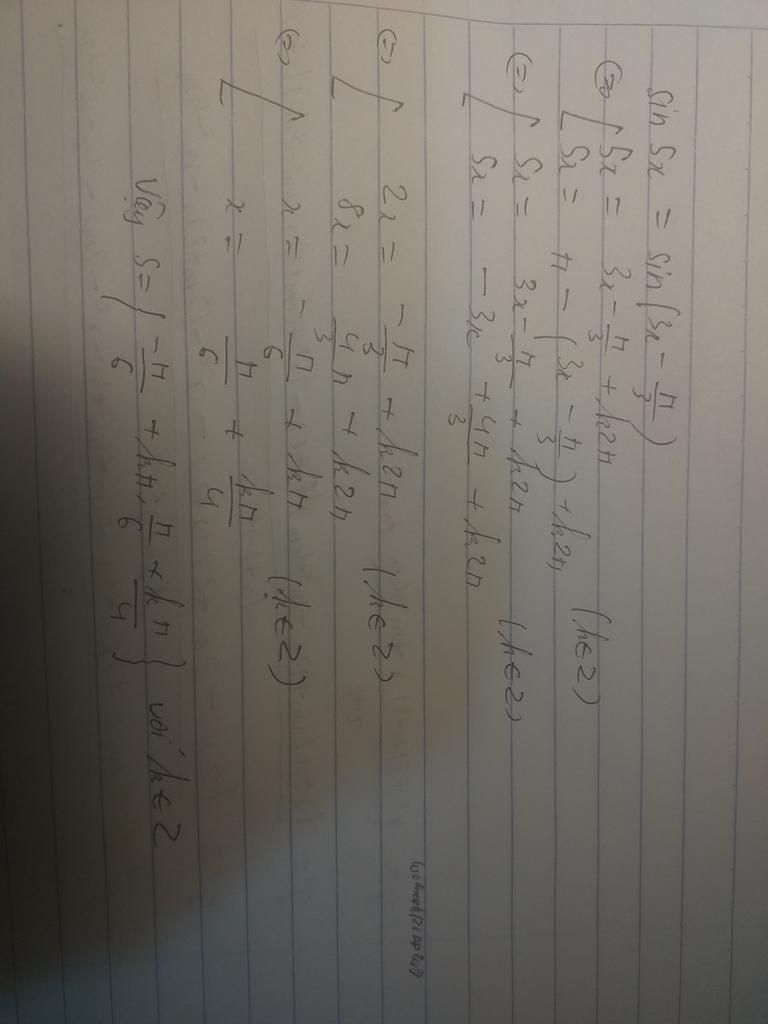 sin 5x = sin(3x - π/3)
⇔ [ 5x = 3x - π/3 + k2π
[ 5x = π - (3x - π/3) + k2π (k∈Z)
⇔ [ 5x = 3x - π/3 + k2π
[ 5x = -3x + 4π/3 + k2π (k∈Z)
⇔ [ 2x = -π/3 + k2π
[ 8x = 4/3 π + k2π (k∈Z)
⇔ [ x = -π/6 + kπ
[ x = π/6 + kπ/4 (k∈Z)
Vậy S = { -π/6 + kπ, π/6 + kπ/4 } với k∈Z